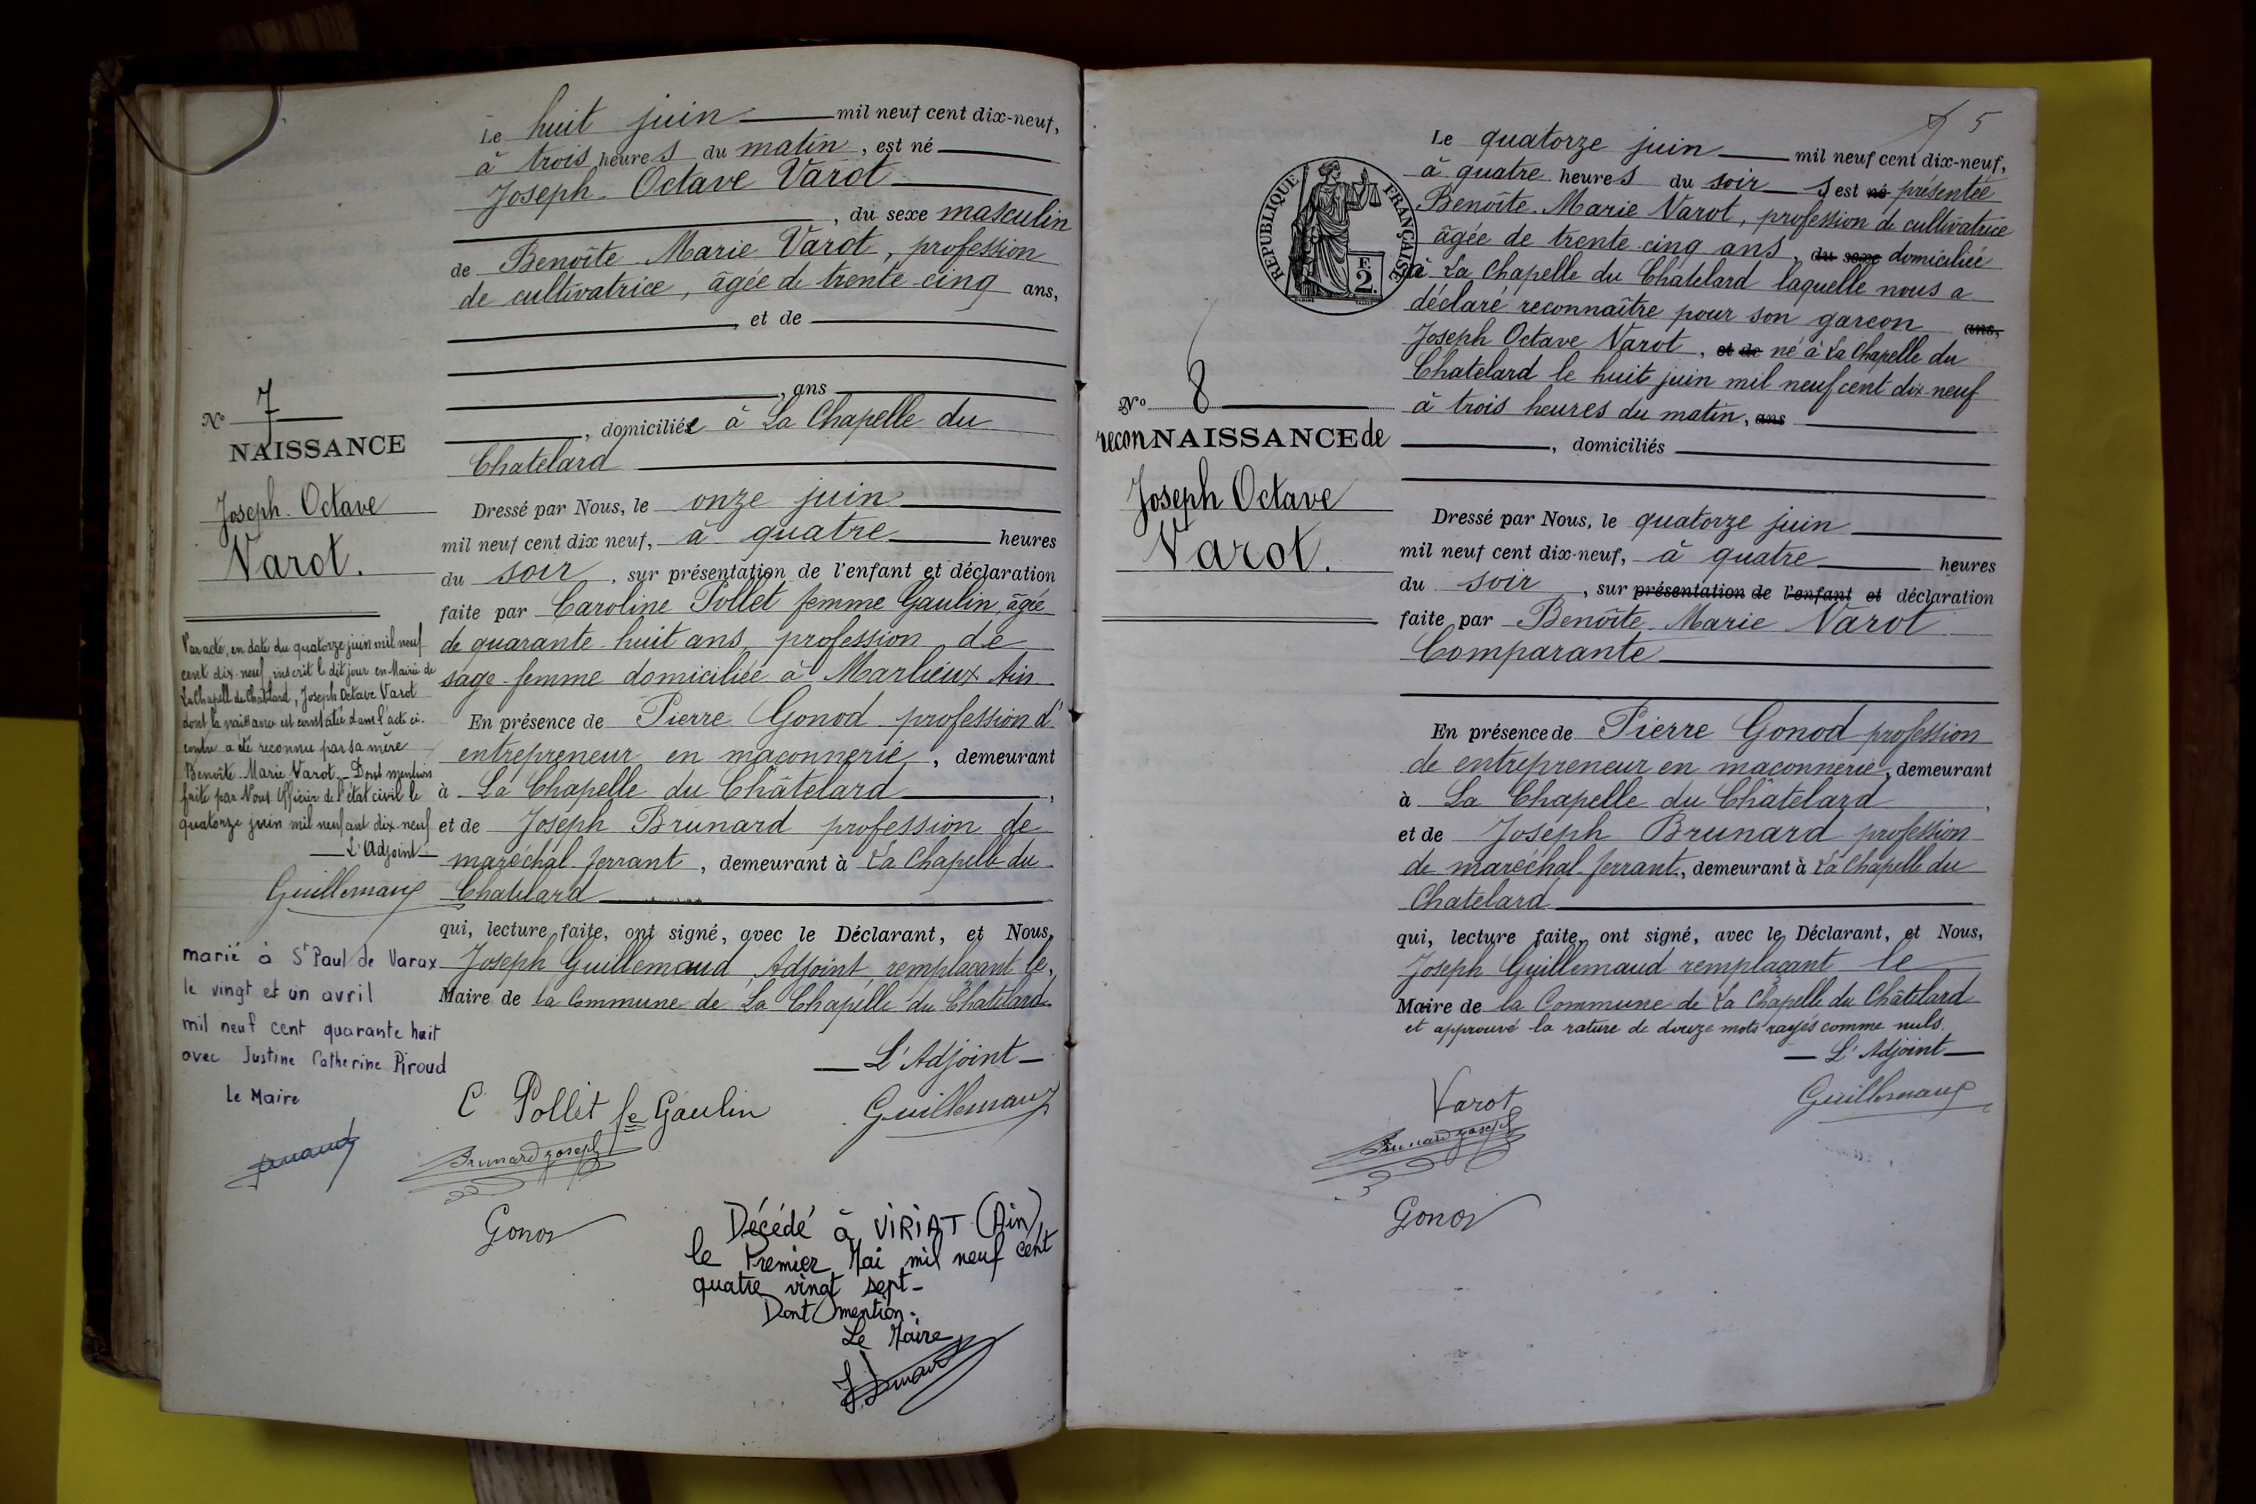 Le huit juin mil neuf cent dix-neuf,
à trois heures du matin, est né
Joseph Octave Varot
, du sexe masculin
de Benoîte Marie Varot, profession
de cultivatrice, âgée de trente cinq ans,
, et de
, ans
, domiciliée à La Chapelle du
Chatelard
Nº 7
NAISSANCE
Joseph Octave
Varot.
Dressé par Nous, le onze juin
mil neuf cent dix neuf, à quatre heures
du soir, sur présentation de l'enfant et déclaration
faite par Caroline Pollet femme Gaulin, âgée
de quarante huit ans, profession de
sage-femme domiciliée à Marlieux Ain
En présence de Pierre Gonod profession d'
entrepreneur en maçonnerie, demeurant
à La Chapelle du Châtelard,
et de Joseph Brunard profession de
maréchal ferrant, demeurant à La Chapelle du
Chatelard
qui, lecture faite, ont signé, avec le Déclarant, et Nous,
Joseph Guillemaud Adjoint remplaçant le,
Maire de la Commune de La Chapelle du Chatelard.
L'Adjoint
C Pollet fe Gaulin
Guillemaud
Brunard Joseph
Gonod
Par acte, en date du quatorze juin mil neuf
cent dix-neuf, inscrit le dit jour en Mairie de
La Chapelle du Chatelard, Joseph Octave Varot
dont la naissance est constatée dans l'acte ci-
contre a été reconnu par sa mère
Benoîte Marie Varot. Dont mention
faite par Nous Officier de l'état civil le
quatorze juin mil neuf cent dix-neuf
L'Adjoint
Guillemaud
marié à St Paul de Varax
le vingt et un avril
mil neuf cent quarante huit
avec Justine Catherine Piroud
Le Maire
Décédé à VIRIAT (Ain)
le Premier Mai mil neuf cent
quatre vingt sept -
Dont mention.
Le Maire
5
RÉPUBLIQUE FRANÇAISE
F.
2.
Le quatorze juin mil neuf cent dix-neuf,
à quatre heures du soir s'est né présentée
Benoîte Marie Varot, profession de cultivatrice
âgée de trente cinq ans, du sexe domiciliée
à La Chapelle du Châtelard laquelle nous a
déclaré reconnaître pour son garçon ans,
Joseph Octave Varot, et de né à La Chapelle du
Chatelard le huit juin mil neuf cent dix-neuf
à trois heures du matin, ans
, domiciliés
Nº 8
reconNAISSANCE de
Joseph Octave
Varot.
Dressé par Nous, le quatorze juin
mil neuf cent dix-neuf, à quatre heures
du soir, sur présentation de l'enfant et déclaration
faite par Benoîte Marie Varot
Comparante
En présence de Pierre Gonod profession
de entrepreneur en maçonnerie, demeurant
à La Chapelle du Châtelard,
et de Joseph Brunard profession
de maréchal-ferrant, demeurant à La Chapelle du
Chatelard
qui, lecture faite, ont signé, avec le Déclarant, et Nous,
Joseph Guillemaud remplaçant le
Maire de la Commune de La Chapelle du Châtelard
et approuvé la rature de douze mots rayés comme nuls.
L'Adjoint
Varot
Guillemaud
Brunard Joseph
Gonod